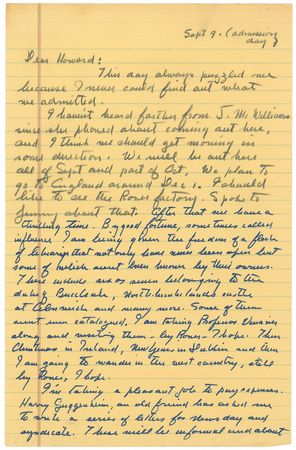 Sept 9. (admission
day)
Dear Howard:
This day always puzzled me
because I never could find out what
we admitted.
I havent heard farther from J. McWilliams
since she phoned about coming out here,
and I think we should get moving in
some direction. We will be out here
all of Sept and part of Oct. We plan to
go to England around Dec 1. I should
like to see the Rover factory. Spoke to
Jimmy about that. After that we have a
thrilling time. By good fortune, sometimes called
influence I am being given the freedom of a flock
of libraries that not only have never been open but
some of which arent even known by their owners.
These include six or seven belonging to the
duke of Buccleuch, Northumberlands
at Alnwick and many more. Some of them
arent even catalogued. I am taking Professor Vinaver
along and reaching them - by Rover - I hope. Then
Christmas in Ireland, New Years in Dublin and then
I am going to wander in the west country, still
by Rover, I hope.
I'm taking a pleasant job to pay expenses.
Harry Guggenheim, an old friend has asked me
to write a series of letters for Newsday and
syndicate. These will be informal and about